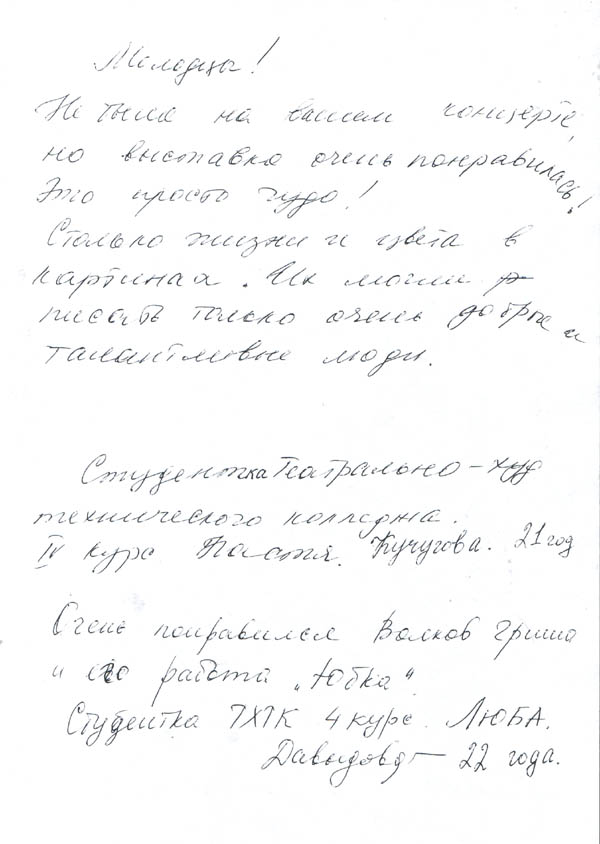 Молодцы!
Не были на вашем концерте,
но выставка очень понравилась!
Это просто чудо!
Столько жизни и цвета в
картинах. Их могли
писать только очень добрые и
талантливые люди.
Студентка Театрально – худ
технического колледжа.
IV курс Настя Кучугова. 21 год
Очень понравился Волков Гриша
и его работа „Юбка“
Студентка ТХТК 4 курс. ЛЮБА.
Давыдова – 22 года.